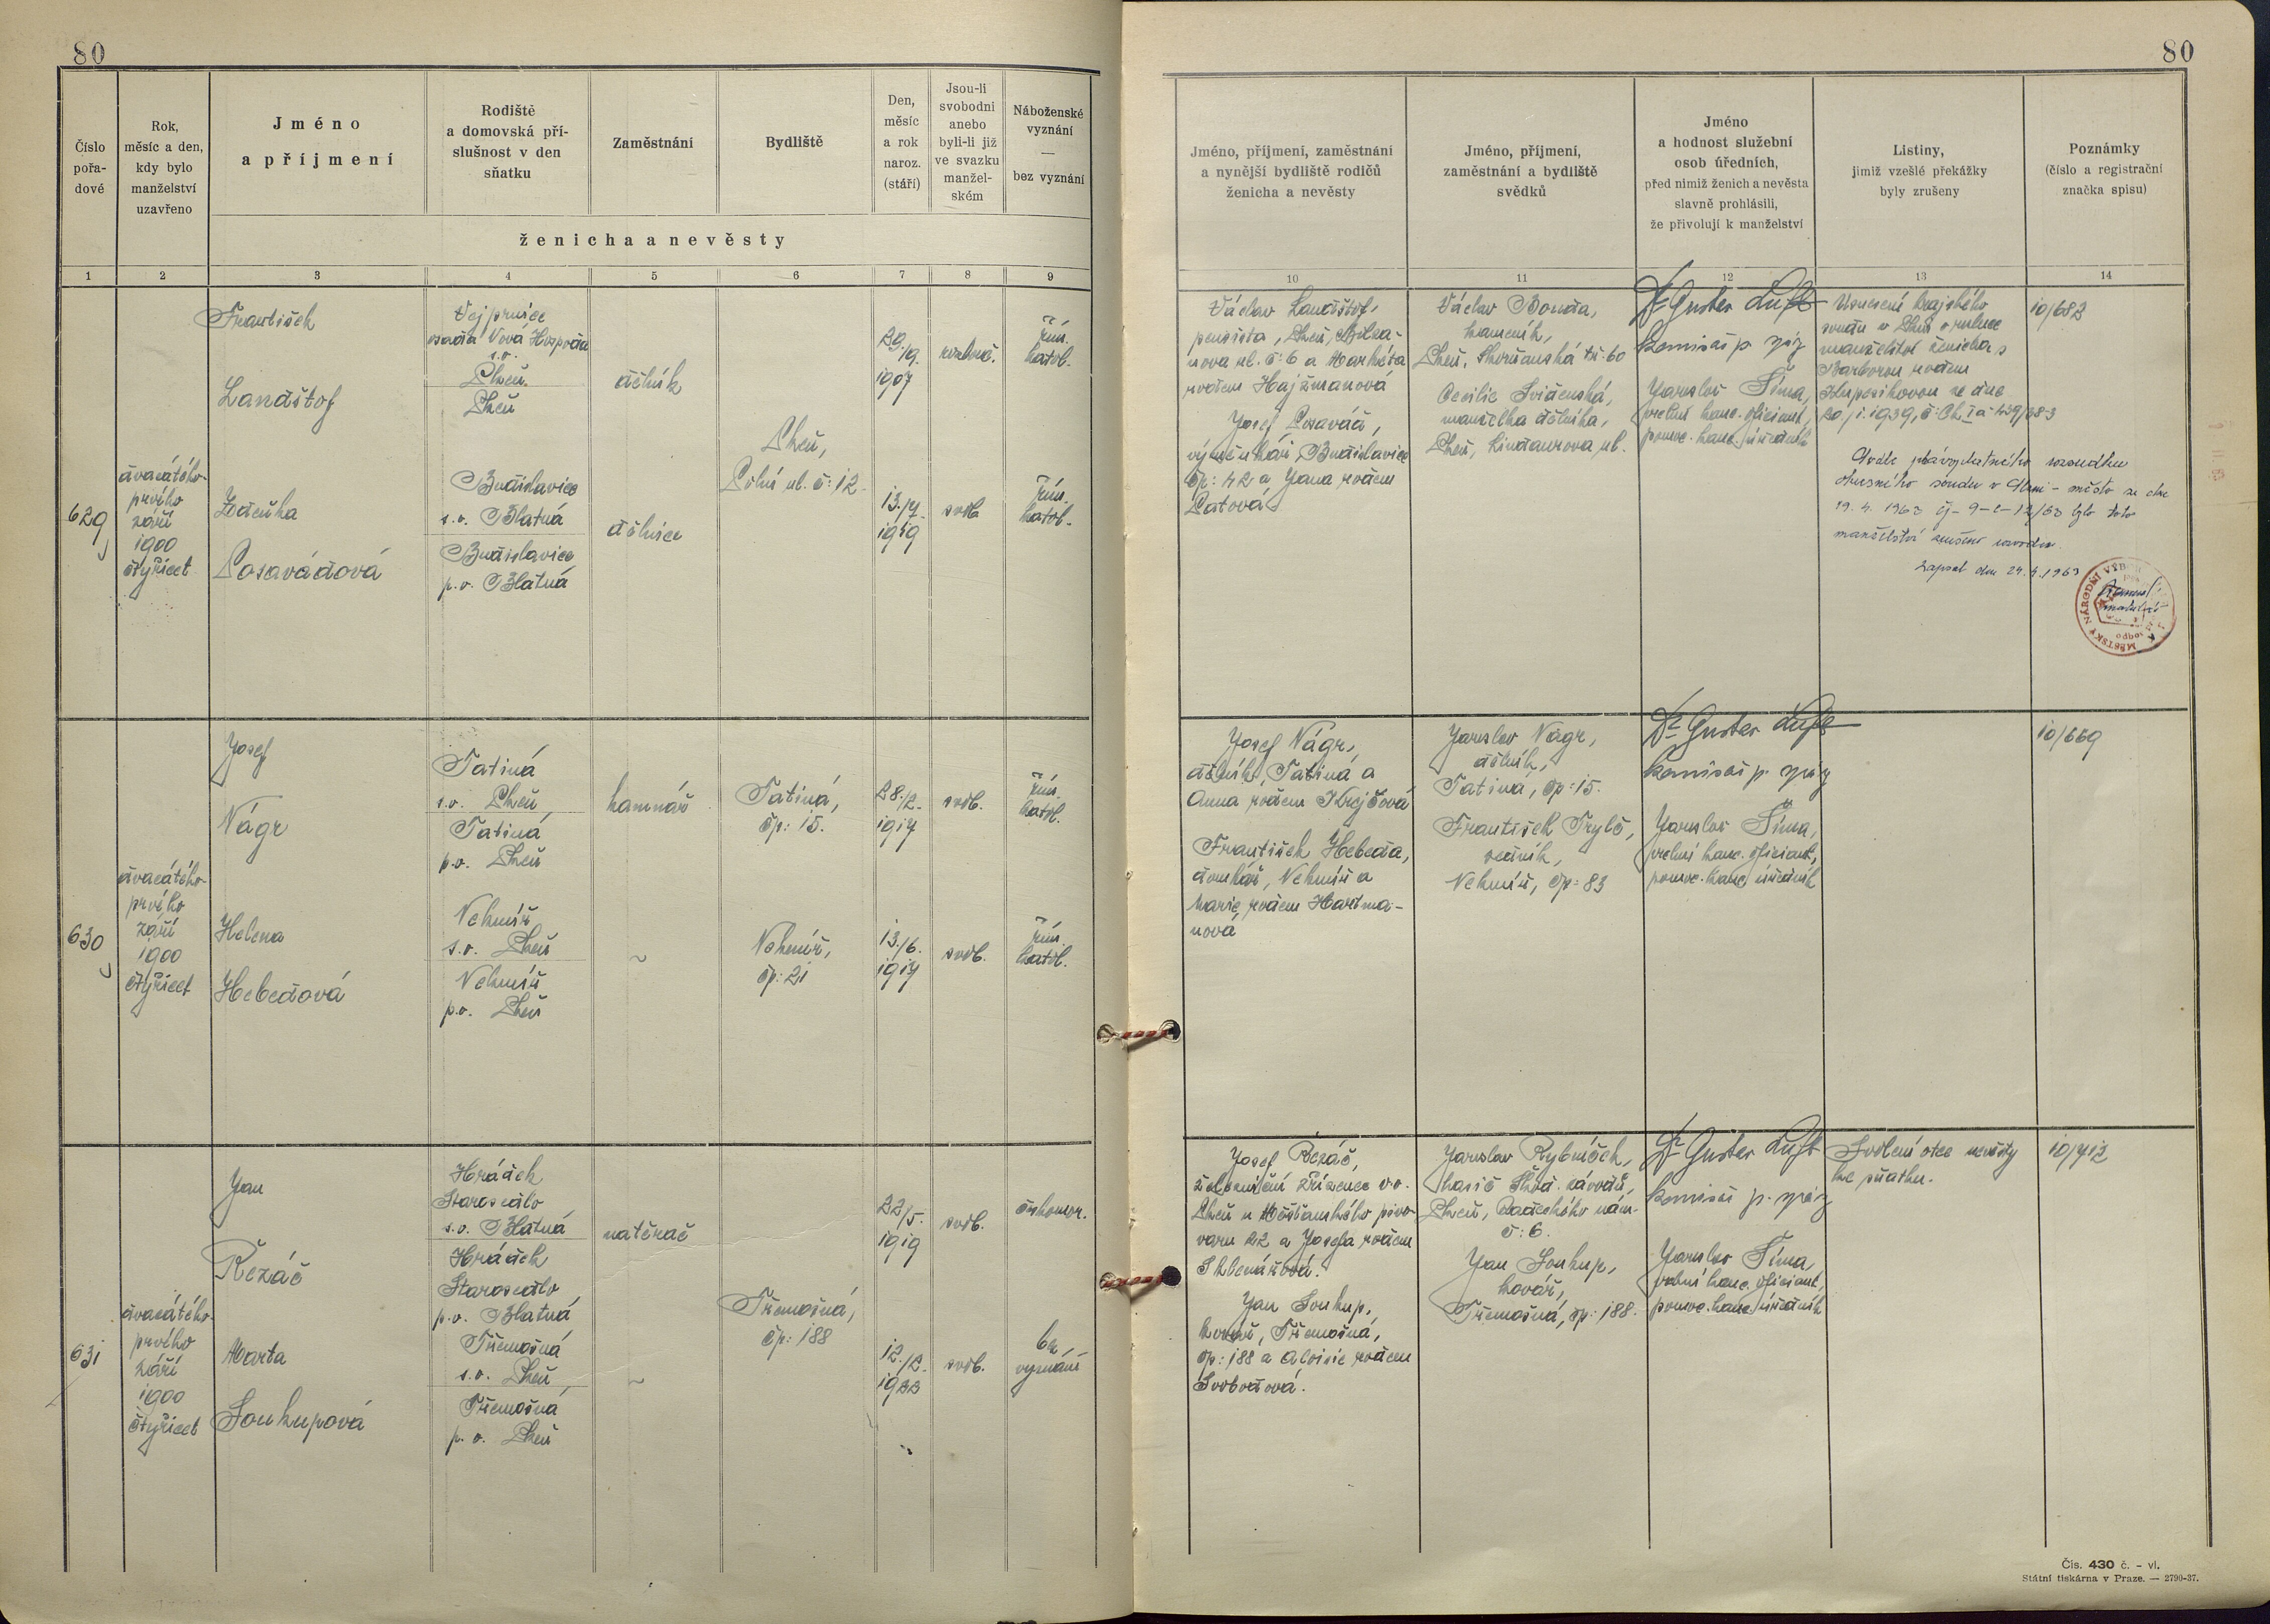 80
80
Číslo
pořa-
dové
Rok,
měsíc a den,
kdy bylo
manželství
uzavřeno
Jméno
a příjmení
Rodiště
a domovská pří-
slušnost v den
sňatku
Zaměstnání
Bydliště
Den,
měsíc
a rok
naroz.
(stáří)
Jsou-li
svobodni
anebo
byli-li již
ve svazku
manžel-
ském
Náboženské
vyznání
—
bez vyznání
ženicha a nevěsty
1 2 3 4 5 6 7 8 9
Jméno, příjmení, zaměstnání
a nynější bydliště rodičů
ženicha a nevěsty
Jméno, příjmení,
zaměstnání a bydliště
svědků
Jméno
a hodnost služební
osob úředních,
před nimiž ženich a nevěsta
slavně prohlásili,
že přivolují k manželství
Listiny,
jimiž vzešlé překážky
byly zrušeny
Poznámky
(číslo a registrační
značka spisu)
10 11 12 13 14
629
dvacátého
prvého
září
1900
čtyřicet
František
Landštof
Vejprnice
osada Nová Hospoda
s.o.
Plzeň
Plzeň
dělník
29./9.
1907
rozluč.
řím.
katol.
Zdeňka
Posavádová
Budislavice
s.o. Blatná
Budislavice
p.o. Blatná
dělnice
Plzeň,
Polní ul. č: 12.
13./7.
1919
svob.
řím.
katol.
Václav Landštof,
pensista, Plzeň,
nova ul. č: 6 a Markéta
rodem Hajšmanová
Josef Posavád,
výměnkář, Budislavice
čp: 42 a Jana rodem
Patová
Václav Bouda,
kameník,
Plzeň, Skvrňanská tř: 60
Cecilie Svidenská,
manželka dělníka,
Plzeň, Lindaurova ul.
Dr Gustav Luft
komisař p. správy
Jaroslav Šíma,
vrchní kanc. oficiant,
pomoc. kanc. úředník
Usnesení krajského
soudu v Plzni o rozluce
manželství ženicha s
Barborou rodem
ze dne
20./1. 1939, č: Ck Ia 439/38-3
10/682
Podle pravoplatného rozsudku
okresního soudu v Plzni - město ze dne
19. 4. 1963 čj - 9-C-12/63 bylo toto
manželství zrušeno rozvodem.
Zapsal dne 24. 4. 1963
MĚSTSKÝ NÁRODNÍ VÝBOR
630
dvacátého
prvého
září
1900
čtyřicet
Josef
Nágr
Tatiná
s.o. Plzeň,
Tatiná
p.o. Plzeň
kamnář
Tatiná,
čp: 15.
28./2.
1917
svob.
řím.
katol.
Helena
Hebedová
Nekmíř
s.o. Plzeň
Nekmíř
p.o. Plzeň
~
Nekmíř,
čp: 21
13./6.
1917
svob.
řím.
katol.
Josef Nágr,
dělník, Tatiná a
Anna rodem Krejčová
František Hebeda,
domkář, Nekmíř a
Marie, rodem Hartma-
nová
Jaroslav Nágr,
dělník,
Tatiná, čp: 15.
František Trylč,
sedník,
Nekmíř, čp: 83
Dr Gustav Luft
komisař p. správy
Jaroslav Šíma,
vrchní kanc. oficiant,
pomoc. kanc. úředník
10/669
631
dvacátého
prvého
září
1900
čtyřicet
Jan
Řezáč
Hrádek
Starosedlo
s.o. Blatná
Hrádek
Starosedlo,
p.o. Blatná
natěrač
22/5.
1919
svob.
českomor.
Marta
Soukupová
Třemošná
s.o. Plzeň,
Třemošná
p.o. Plzeň
~
Třemošná,
čp: 188
12./2.
1922
svob.
bez
vyznání
Josef Řezáč,
železniční zřízenec v.v.
Plzeň u Měšťanského pivo-
varu 22 a Josefa rodem
Skbenářová.
Jan Soukup,
kovář, Třemošná,
čp: 188 a Aloisie rodem
Svobodová.
Jaroslav Rybníček,
hasič Škod. závodů,
Plzeň, nám.
č: 6.
Jan Soukup,
kovář,
Třemošná, čp: 188.
Dr Gustav Luft
komisař p. správy
Jaroslav Šíma,
vrchní kanc. oficiant,
pomoc. kanc. úředník
Svolení otce nevěsty
ke sňatku.
10/712
Čís. 430 č. - vl.
Státní tiskárna v Praze. — 2790-37.